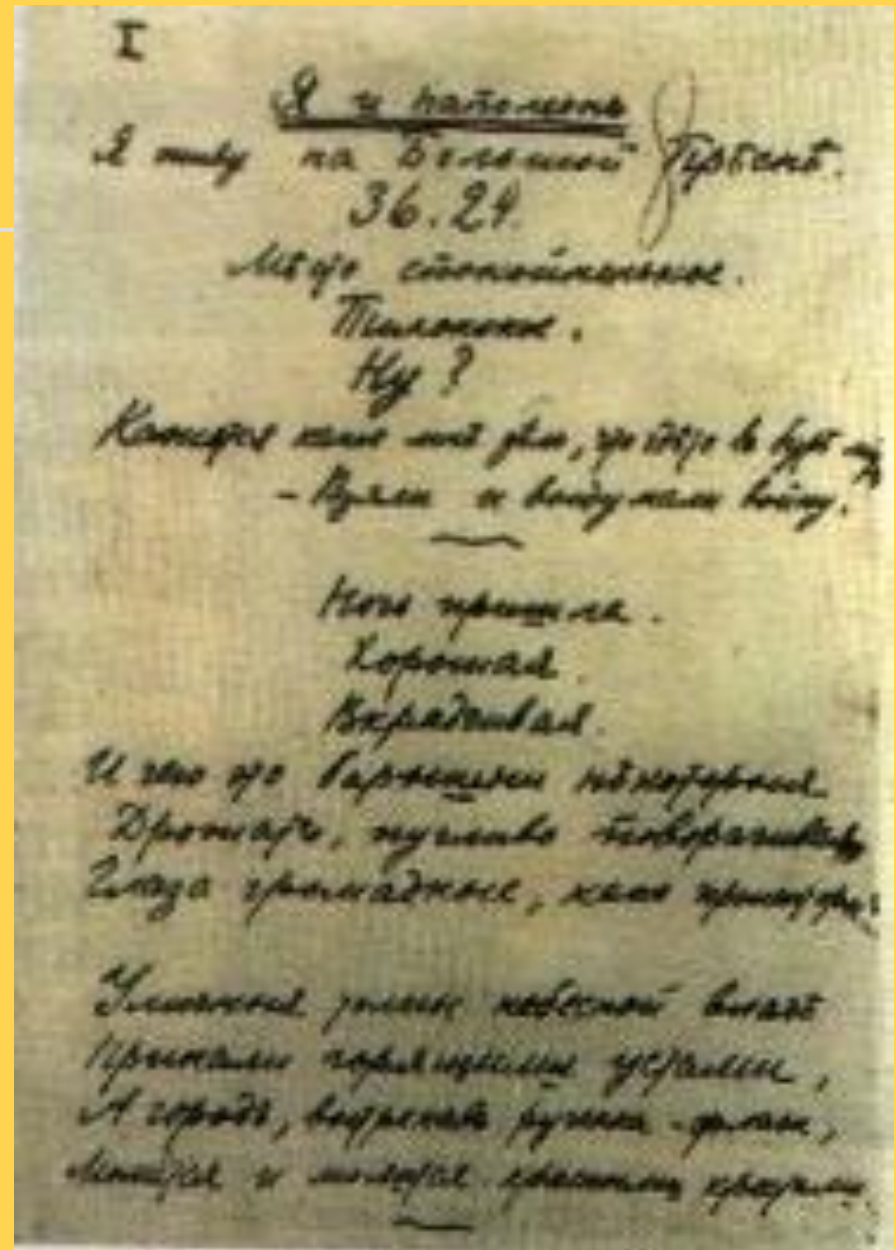 I
Я и Наполеонъ
Я живу на Большой Прѣснѣ.
36.24.
Мѣсто спокойненькое.
Тихонькое.
Ну?
Кажется какое мнѣ дѣло, что гдѣ то въ бурѣ-
- Взяли и выдумали войну?
Ночь пришла.
Хорошая.
Вкрадчивая.
И чего это барышни нѣкоторыя
Дрожатъ, пугливо поворачивая
Глаза громадные, какъ прожекторы?
Уличныя толпы небесной влагѣ
Припали горящими устами,
А городъ, вытрепавъ ручонки-флаги,
Молится и молится красными крестами.